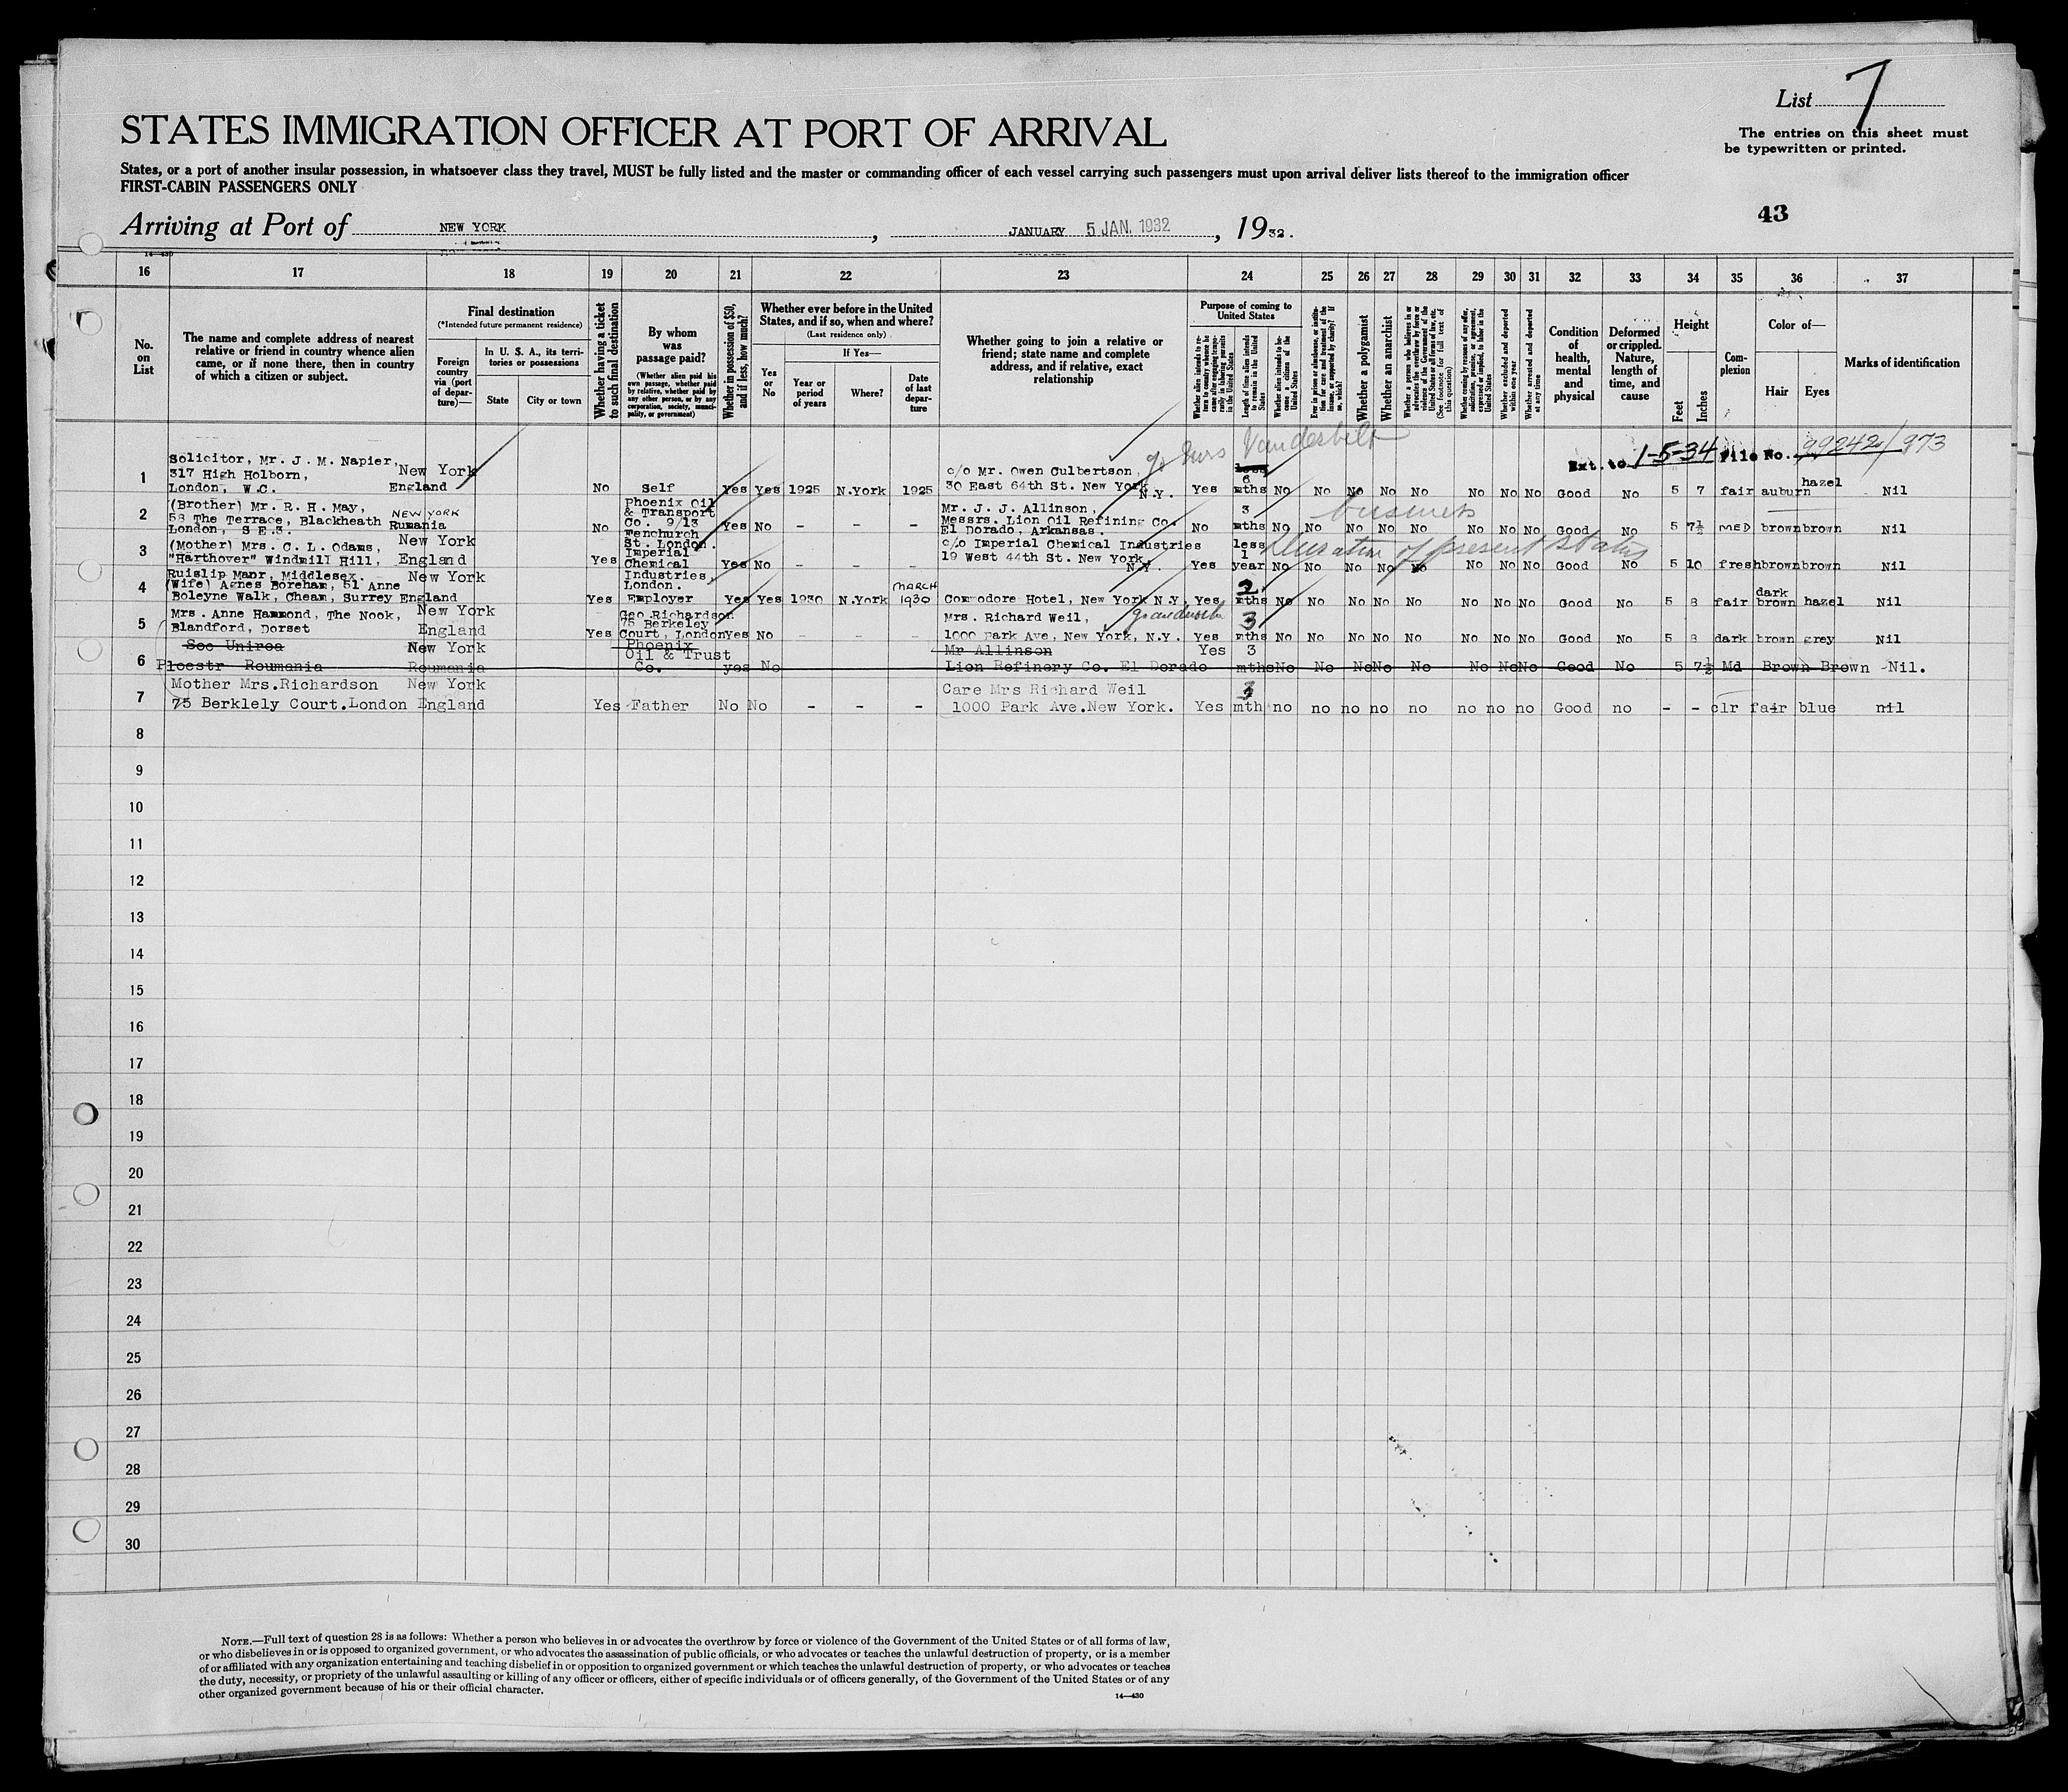 List 7
The entries on this sheet must
be typewritten or printed.
STATES IMMIGRATION OFFICER AT PORT OF ARRIVAL
States, or a port of another insular possession, in whatsoever class they travel, MUST be fully listed and the master or commanding officer of each vessel carrying such passengers must upon arrival deliver lists thereof to the immigration officer
FIRST-CABIN PASSENGERS ONLY
43
Arriving at Port of NEW YORK, JANUARY 5 JAN. 1932, 1932.
14—430
16 17 18 19 20 21 22 23 24 25 26 27 28 29 30 31 32 33 34 35 36 37
No. on List
The name and complete address of nearest
relative or friend in country whence alien
came, or if none there, then in country
of which a citizen or subject.
Final destination
(*Intended future permanent residence)
Foreign country via (port of departure)—
In U. S. A., its territories or possessions
State
City or town
Whether having a ticket to such final destination
By whom was passage paid?
(Whether alien paid his own passage, whether paid by relative, whether paid by any other person, or by any corporation, society, municipality, or government)
Whether in possession of $50, and if less, how much?
Whether ever before in the United States, and if so, when and where?
(Last residence only)
If Yes—
Yes or No
Year or period of years
Where?
Date of last departure
Whether going to join a relative or
friend; state name and complete
address, and if relative, exact
relationship
Purpose of coming to United States
Whether alien intends to return to country whence he came after engaging temporarily in laboring pursuits in the United States
Length of time alien intends to remain in the United States
Whether alien intends to become a citizen of the United States
Ever in prison or almshouse, or institution for care and treatment of the insane, or supported by charity? If so, which?
Whether a polygamist
Whether an anarchist
Whether a person who believes in or advocates the overthrow by force or violence of the Government of the United States or all forms of law, etc. (See footnote for full text of this question)
Whether coming by reasons of any offer, solicitation, promise, or agreement, expressed or implied, to labor in the United States
Whether excluded and deported within one year
Whether arrested and deported at any time
Condition of health, mental and physical
Deformed or crippled. Nature, length of time, and cause
Height
Feet
Inches
Complexion
Color of—
Hair
Eyes
Marks of identification
c/o Mrs Vanderbilt
Ext. to 1-5-34 File No. 99242/973
1
Solicitor, Mr. J. M. Napier, New York
317 High Holborn,
London, W.C. England No Self Yes Yes 1925 N.York 1925
c/o Mr. Owen Culbertson,
30 East 64th St. New York N.Y. Yes less 6 mths No No No No No No No No Good No 5 7 fair auburn hazel Nil
2
(Brother) Mr. R. H. May, NEW YORK
58 The Terrace, Blackheath Rumania
London, S E.3. No
Phoenix Oil
& Transport
Co. 9/13
Fenchurch
St. London. Yes No - - -
Mr. J. J. Allinson,
Messrs. Lion Oil Refining Co.
El Dorado, Arkansas. No 3 mths No No No No No No No No Good No 5 7½ MED brown brown Nil
business
3
(Mother) Mrs. C. L. Odams, New York
"Harthover" Windmill Hill, England
Ruislip Manr, Middlesex. Yes
Imperial
Chemical
Industries,
London. Yes No - - -
c/o Imperial Chemical Industries
19 West 44th St. New York N.Y. Yes less 1 year No No No No No No No No Good No 5 10 fresh brown brown Nil
Duration of present status
4
(Wife) Agnes Boreham, 51 Anne New York
Boleyne Walk, Cheam, Surrey England Yes Employer Yes Yes 1930 N.York MARCH 1930
Commodore Hotel, New York N.Y. Yes 2 mths No No No No No No No No Good No 5 8 fair dark brown hazel Nil
5
Mrs. Anne Hammond, The Nook, New York
Blandford, Dorset England Yes
Geo.Richardson
75 Berkeley
Court, London Yes No - - -
Mrs. Richard Weil,
1000 Park Ave, New York, N.Y. Yes 3 mths No No No No No No No No Good No 5 8 dark brown grey Nil
6
Soc Unirea New York
Ploestr Roumania Roumania
Phoenix
Oil & Trust
Co. yes No
Mr Allinson
Lion Refinery Co. El Dorado Yes 3 mths No No No No No No No No Good No 5 7½ Md Brown Brown Nil.
7
Mother Mrs.Richardson New York
75 Berklely Court.London England Yes Father No No - - -
Care Mrs Richard Weil
1000 Park Ave.New York. Yes 3 mth no no no no no no no no Good no - - clr fair blue nil
8
9
10
11
12
13
14
15
16
17
18
19
20
21
22
23
24
25
26
27
28
29
30
NOTE.—Full text of question 28 is as follows: Whether a person who believes in or advocates the overthrow by force or violence of the Government of the United States or of all forms of law,
or who disbelieves in or is opposed to organized government, or who advocates the assassination of public officials, or who advocates or teaches the unlawful destruction of property, or is a member
of or affiliated with any organization entertaining and teaching disbelief in or opposition to organized government or which teaches the unlawful destruction of property, or who advocates or teaches
the duty, necessity, or propriety of the unlawful assaulting or killing of any officer or officers, either of specific individuals or of officers generally, of the Government of the United States or of any
other organized government because of his or their official character.
14—430